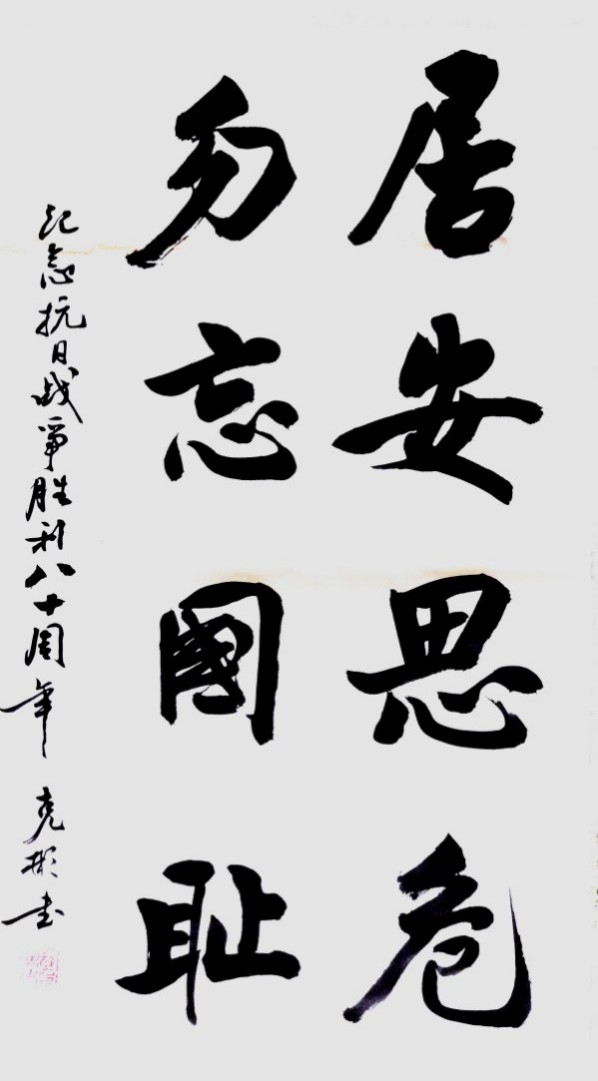 居安思危
勿忘國耻
纪念抗日战争胜利八十周年 克彬书